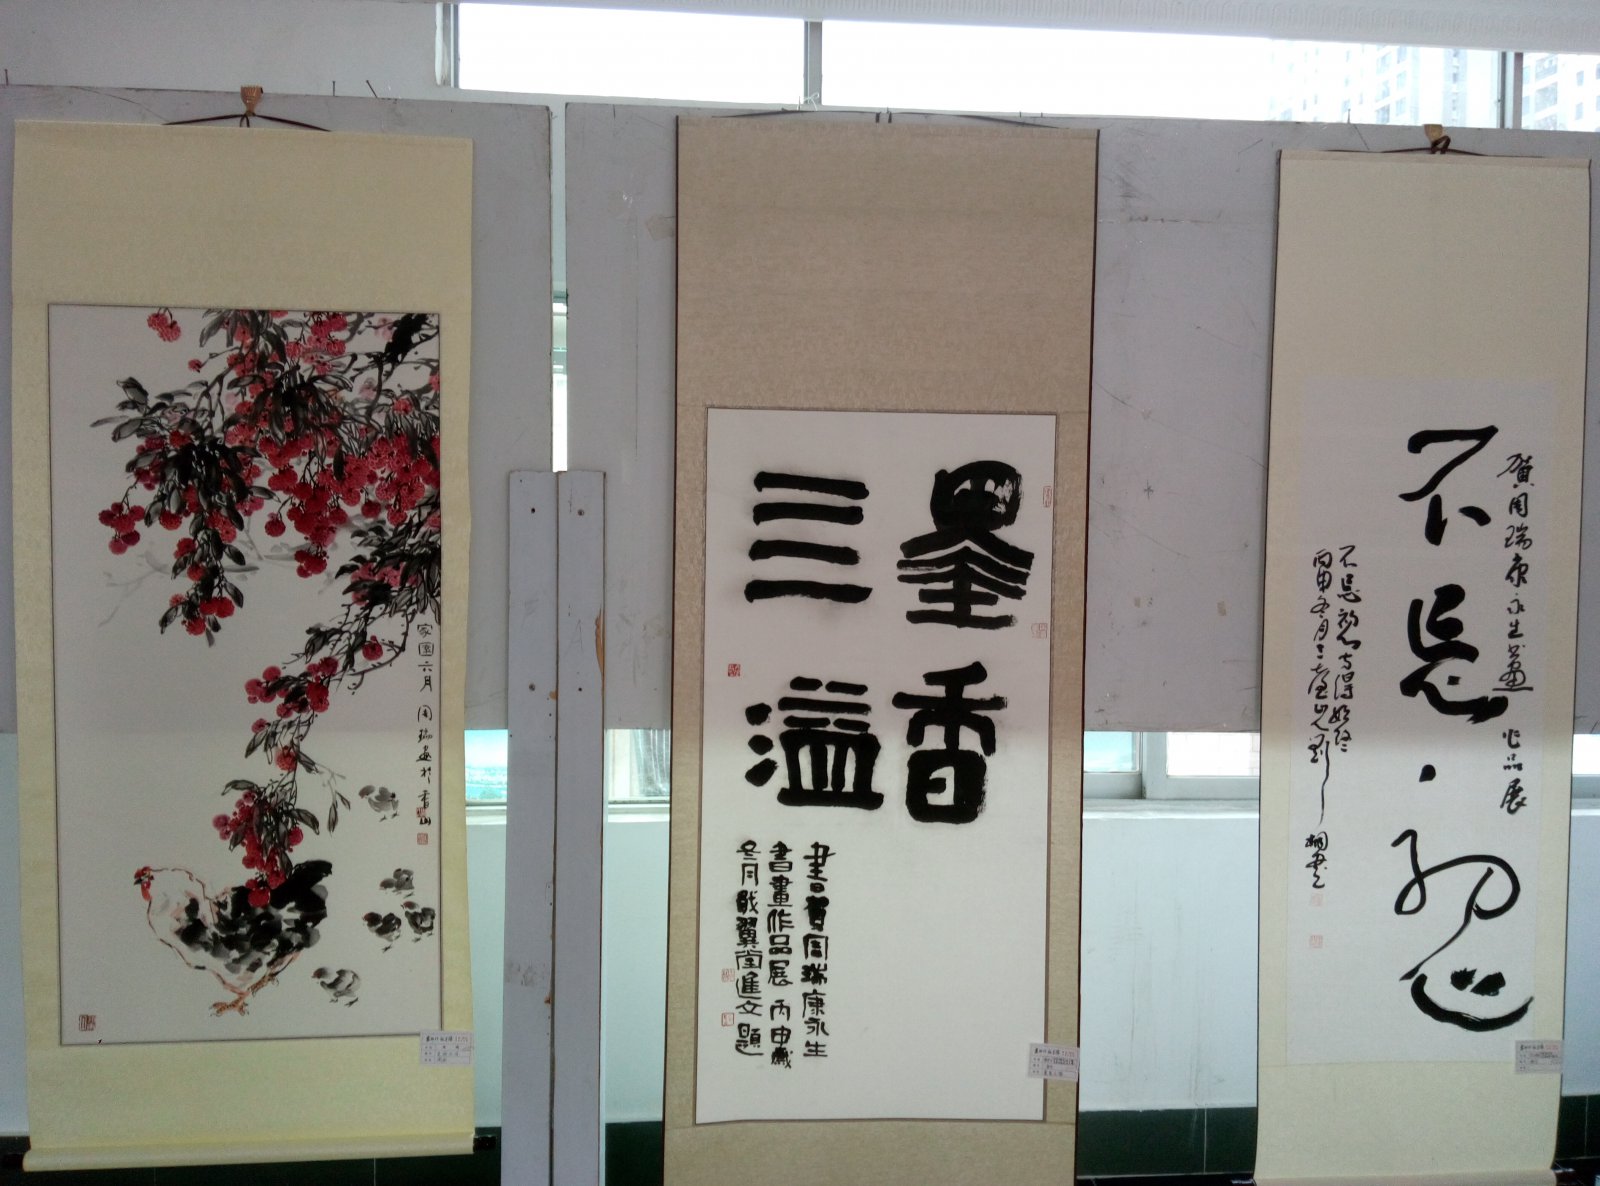 家園六月 周瑞画於香山
墨香
亖溢
書賀周瑞康永生
書畫作品展 丙申歲
冬月 翼堂進文題
贺周瑞康永生书画作品展
不忘初心
不忘初心方得始终
丙申冬月